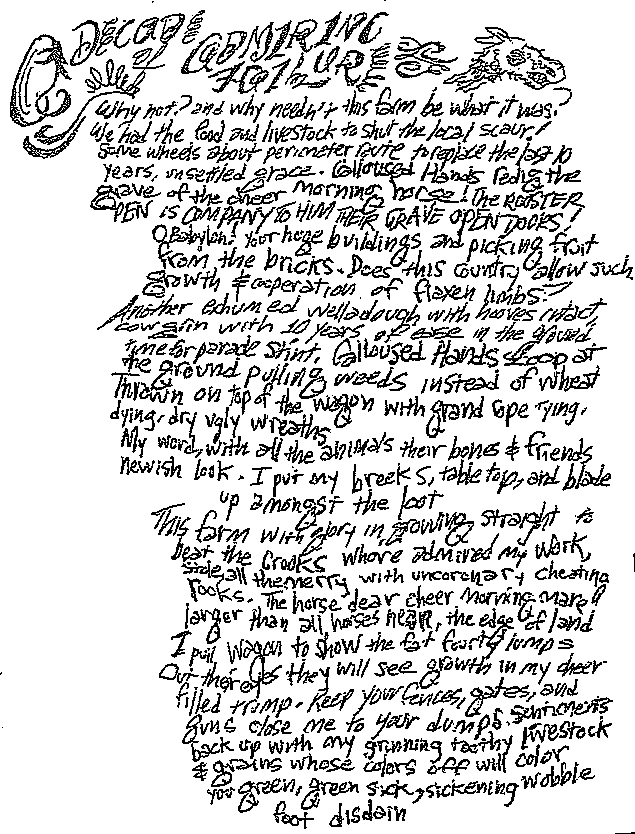 A DECADE
of ADMIRING
FAILURE
Why not? and why needn't this farm be what it was?
We had the food and livestock to shut the local scour!
Some wheels about perimeter route to replace the last 10
years, unsettled grace. Calloused Hands redig the
grave of the cheer morning horse! The ROOSTER
PEN is COMPANY TO HIM THEIR GRAVE OPEN DOORS!
O Babylon! Your huge buildings and picking fruit
from the bricks. Does this country allow such
Growth & cooperation of flaxen limbs?
Another exhumed welladough with hooves intact,
cow grin with 10 years of ease in the ground
time for parade stint. Calloused Hands stoop at
the ground pulling weeds instead of wheat
Thrown on top of the wagon with grand rope tying,
dying, dry ugly wreaths
My word, with all the animals their bones & friends
newish look. I put my breeks, table top, and blade
up amongst the loot
This farm with glory in growing straight to
beat the crooks whove admired my work,
stole, all the merry with uncoronary cheating
rooks. The horse dear cheer morning mare!!
larger than all horses near, the edge of land
I pull wagon to show the fat fourty lumps
Out there Yes they will see growth in my cheer
filled tromp. Keep your fences, gates, and
guns close me to your dumps. Sentiments
back up with my grinning toothy livestock
& grains whose colors off will color
you green, green sick, sickening wobble
foot disdain